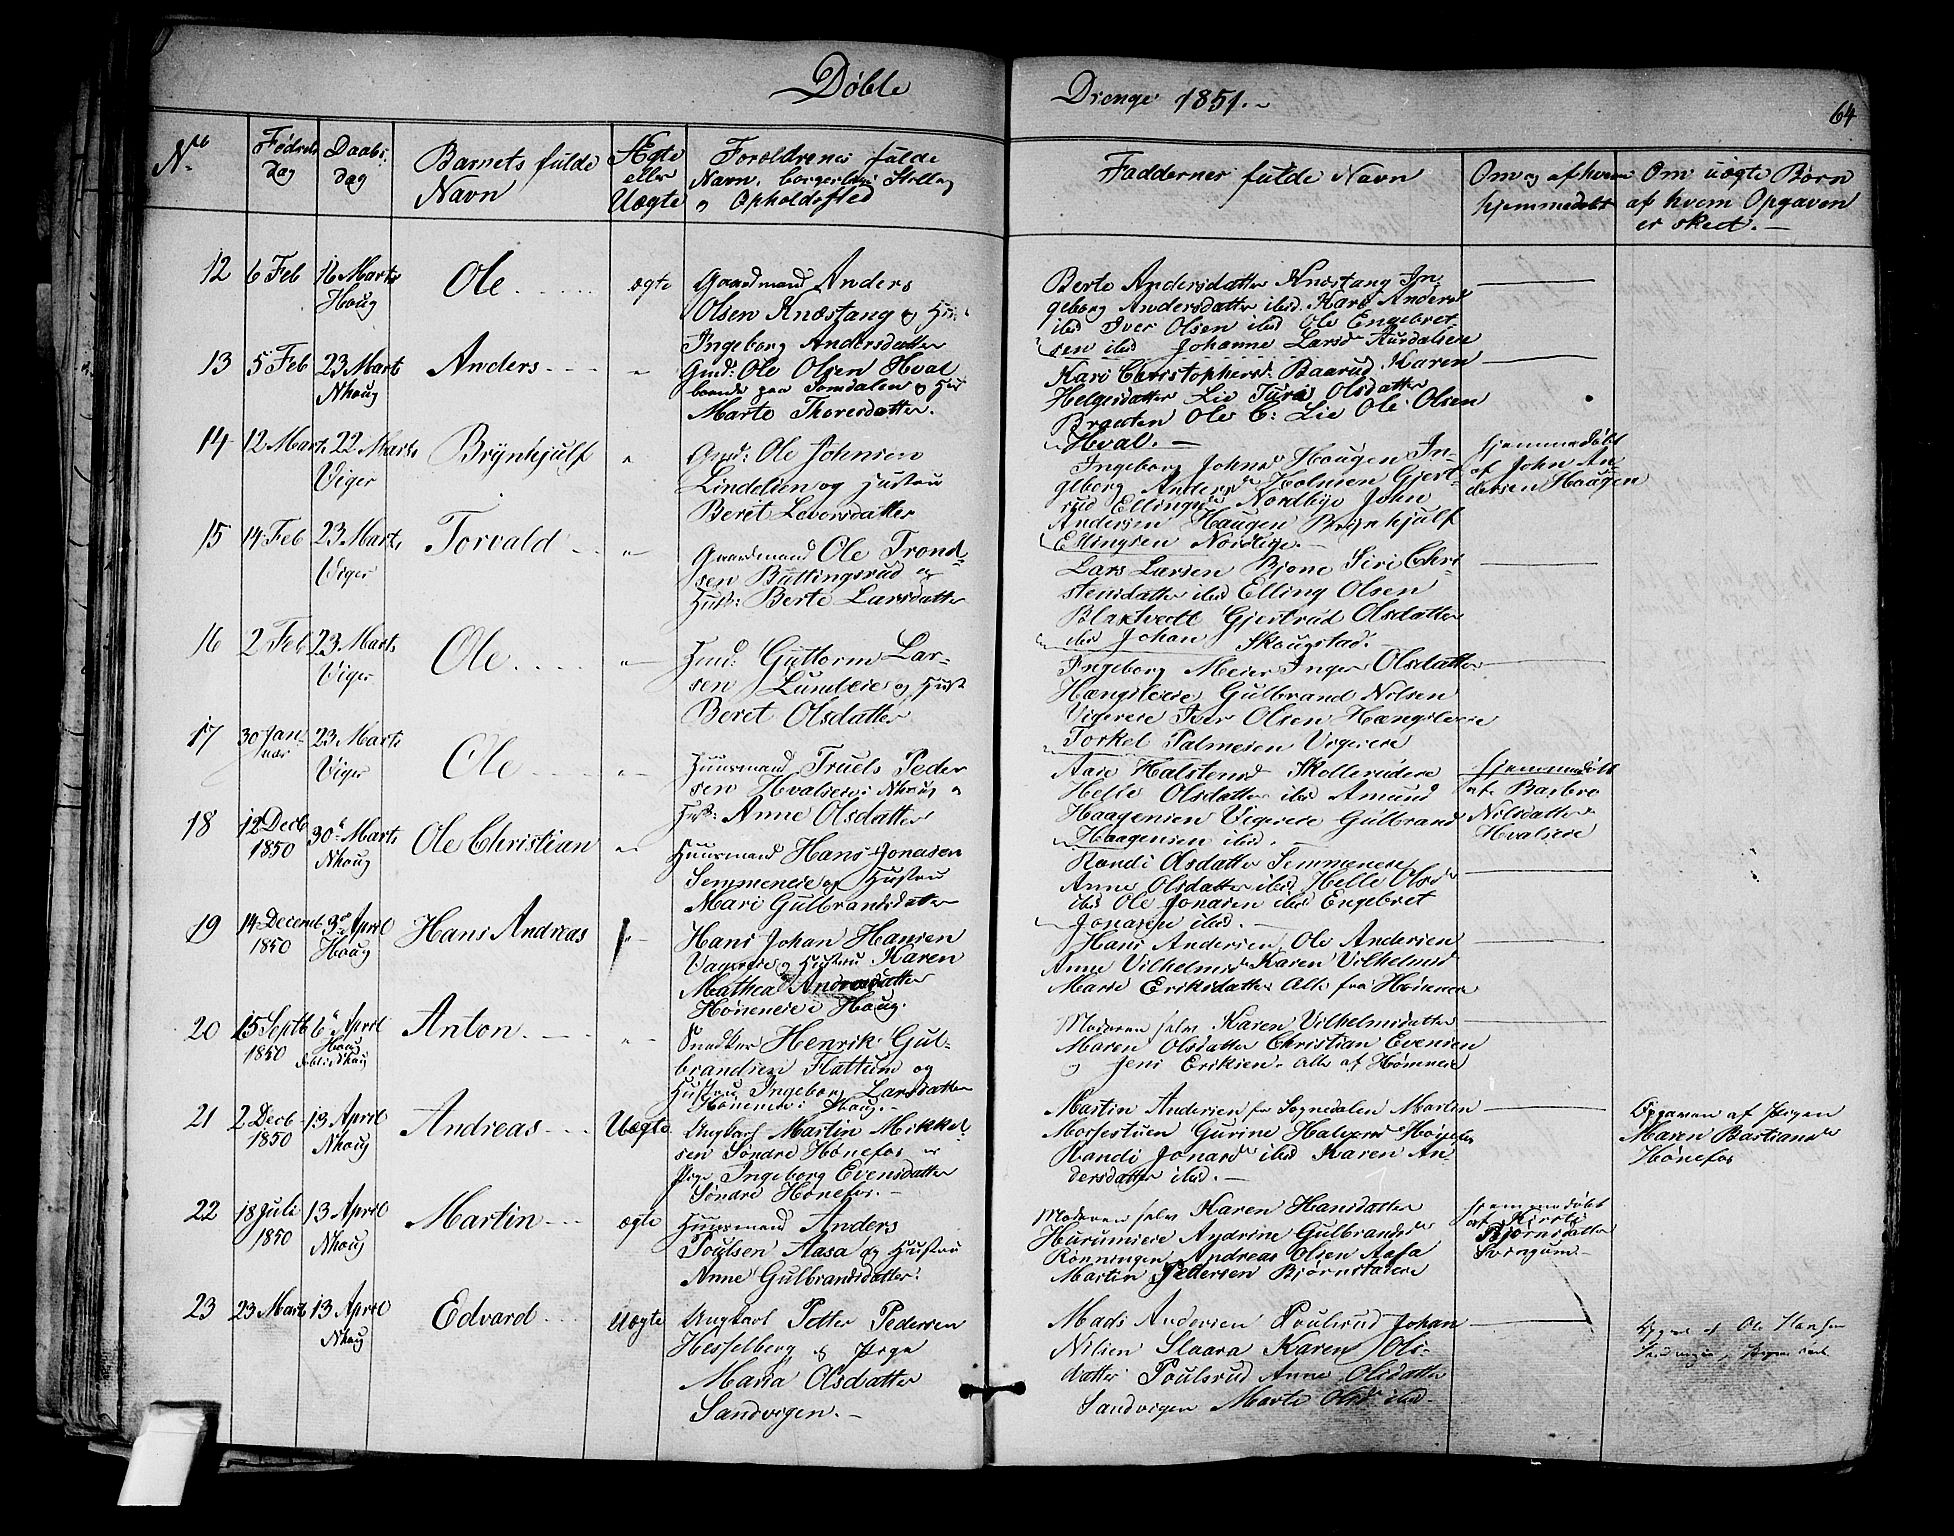 Døbte Drenge 1851.
64
No
Fødsels
dag
Daabs
dag
Barnets fulde
Navn
Ægte
eller
Uægte
Forældrenes fulde
Navn, borgerlige Stilling
og Opholdssted
Faddernes fulde Navn
Om og af hvem
hjemmedøbt
Om uægte Børn
af hvem Opgaven
er skeet.
12 6 Feb 16 Marts
Houg
Ole ægte
Gaardmand Anders
Olsen Knæstang og
Ingeborg Andersdatter
Berte Andersdatter Knæstang In-
geborg Andersdatter ibid Kari Andersd
ibid Iver Olsen ibid Ole Engebret
sen ibid Johanne Larsd
13 5 Feb 23 Marts
Nhoug
Anders "
Gmd: Ole Olsen Hval
boende paa Somdalen og
Marte Thoresdatter.
Kari Christophersd: Baarud Karen
Helgesdatter Lie Turi Olsdatter
Braaten Ole C: Lie Ole Olsen
Hval.
14 12 Marts 22 Marts
Viger
Brynhjulf "
Gmd: Ole Johnsen
Lindelien og Hustru
Beret Leversdatter
Ingeborg Johnsd Hougen In-
geborg Andersd Holmen Gjert-
rud Ellingsd Nordbye John
Andersen Haugen Brynhjulf
Ellingsen Nordbye.
hjemmedøbt
af John An-
dersen Haagen
15 14 Feb 23 Marts
Viger
Torvald "
Gaardmand Ole Trond-
sen Buttingsrud og
Hust: Berte Larsdatter
Lars Larsen Bjone Siri Chri-
stensdatter ibid Elling Olsen
Blakvedt Gjertrud Olsdatter
ibid Johan Skougstad.
16 2 Feb 23 Marts
Viger
Ole "
Hmd: Guttorm Lar-
sen Lundeie og Hust
Beret Olsdatter
Ingeborg Meier Inger Olsdatter
Hængsleeie Gulbrand Nilsen
Vigereie Iver Olsen Hængsleeie
Torkel Palmesen Vigereie
17 30 Jan-
uar
23 Marts
Viger
Ole "
Huusmand Truels Peder
sen Hvalseie i Nhoug og
Hust: Anne Olsdatter
Aase Halstensd Skollerudeie
Helle Olsdatter ibid Amund
Haagensen Vigereie Gulbrand
Haagensen ibid.
hjemmedøbt
af Barbro
Nilsdatter
Hvalseie
18 12 Decb
1850
30 Marts
Nhoug
Ole Christian "
Huusmand Hans Jonasen
Semmeneie og Hustru
Mari Gulbrandsdatter
Randi Olsdatter Semmeneie
Anne Olsdatter ibid Helle Olsd
ibid Ole Jonasen ibid Engebret
Jonasen ibid.
19 14 Decemb
1850
3 April
Houg
Hans Andreas "
Hans Johan Hansen
og Hustru Karen
Mathea Andreasdatter
Høneneie i Houg.
Hans Andersen, Ole Andersen
Anne Vilhelmsd Karen Vilhelmsd
Marie Eriksdatter Alle fra Hønneneie
20 15 Septb
1850
6 April
Houg
Anton "
Snedker Henrik Gul-
brandsen Flattum og
Hustru Ingeborg Larsdatter
Høneneie i Houg.
Moderen selv Karen Vilhelmsdatter
Maren Olsdatter Christian Evensen
og Jens Eriksen. Alle af Hønneneie
21 2 Decb
1850
13 April
Nhoug
Andreas Uægte
Ungkarl Martin Mikkel-
sen Søndre Hønefos og
Pige Ingeborg Evensdatter
Søndre Hønefos.
Martin Andersen fr Sognedalen Marten
Gurine Halvorsd
Randi Jonasd ibid Karen An
dersdatter ibid.
Opgaven af Pigen
Maren Bastiansd
Hønefos
22 18 Juli
1850
13 April
Nhoug
Martin ægte
Huusmand Anders
Poulsen Aasa og Hustru
Anne Gulbrandsdatter.
Moderen selv Karen Hansdatter
Hurumseie Andrine Gulbrandsd
Rønningen Andreas Olsen Aasa
Martin Pedersen Bjørnstadeie
hjemmedøbt
af Kirsti
Bjørnsdatter
23 23 Marts 13 April
Nhoug
Edvard Uægte
Ungkarl Petter Pedersen
Hesselberg og Pige
Maria Olsdatter
Sandvigen.
Mads Andersen Poulsrud Johan
Nilsen Slaara Karen Ols-
datter Poulsrud Anne Olsdatter
Sandvigen Marte Olsd ibid.
af Ole Hansen